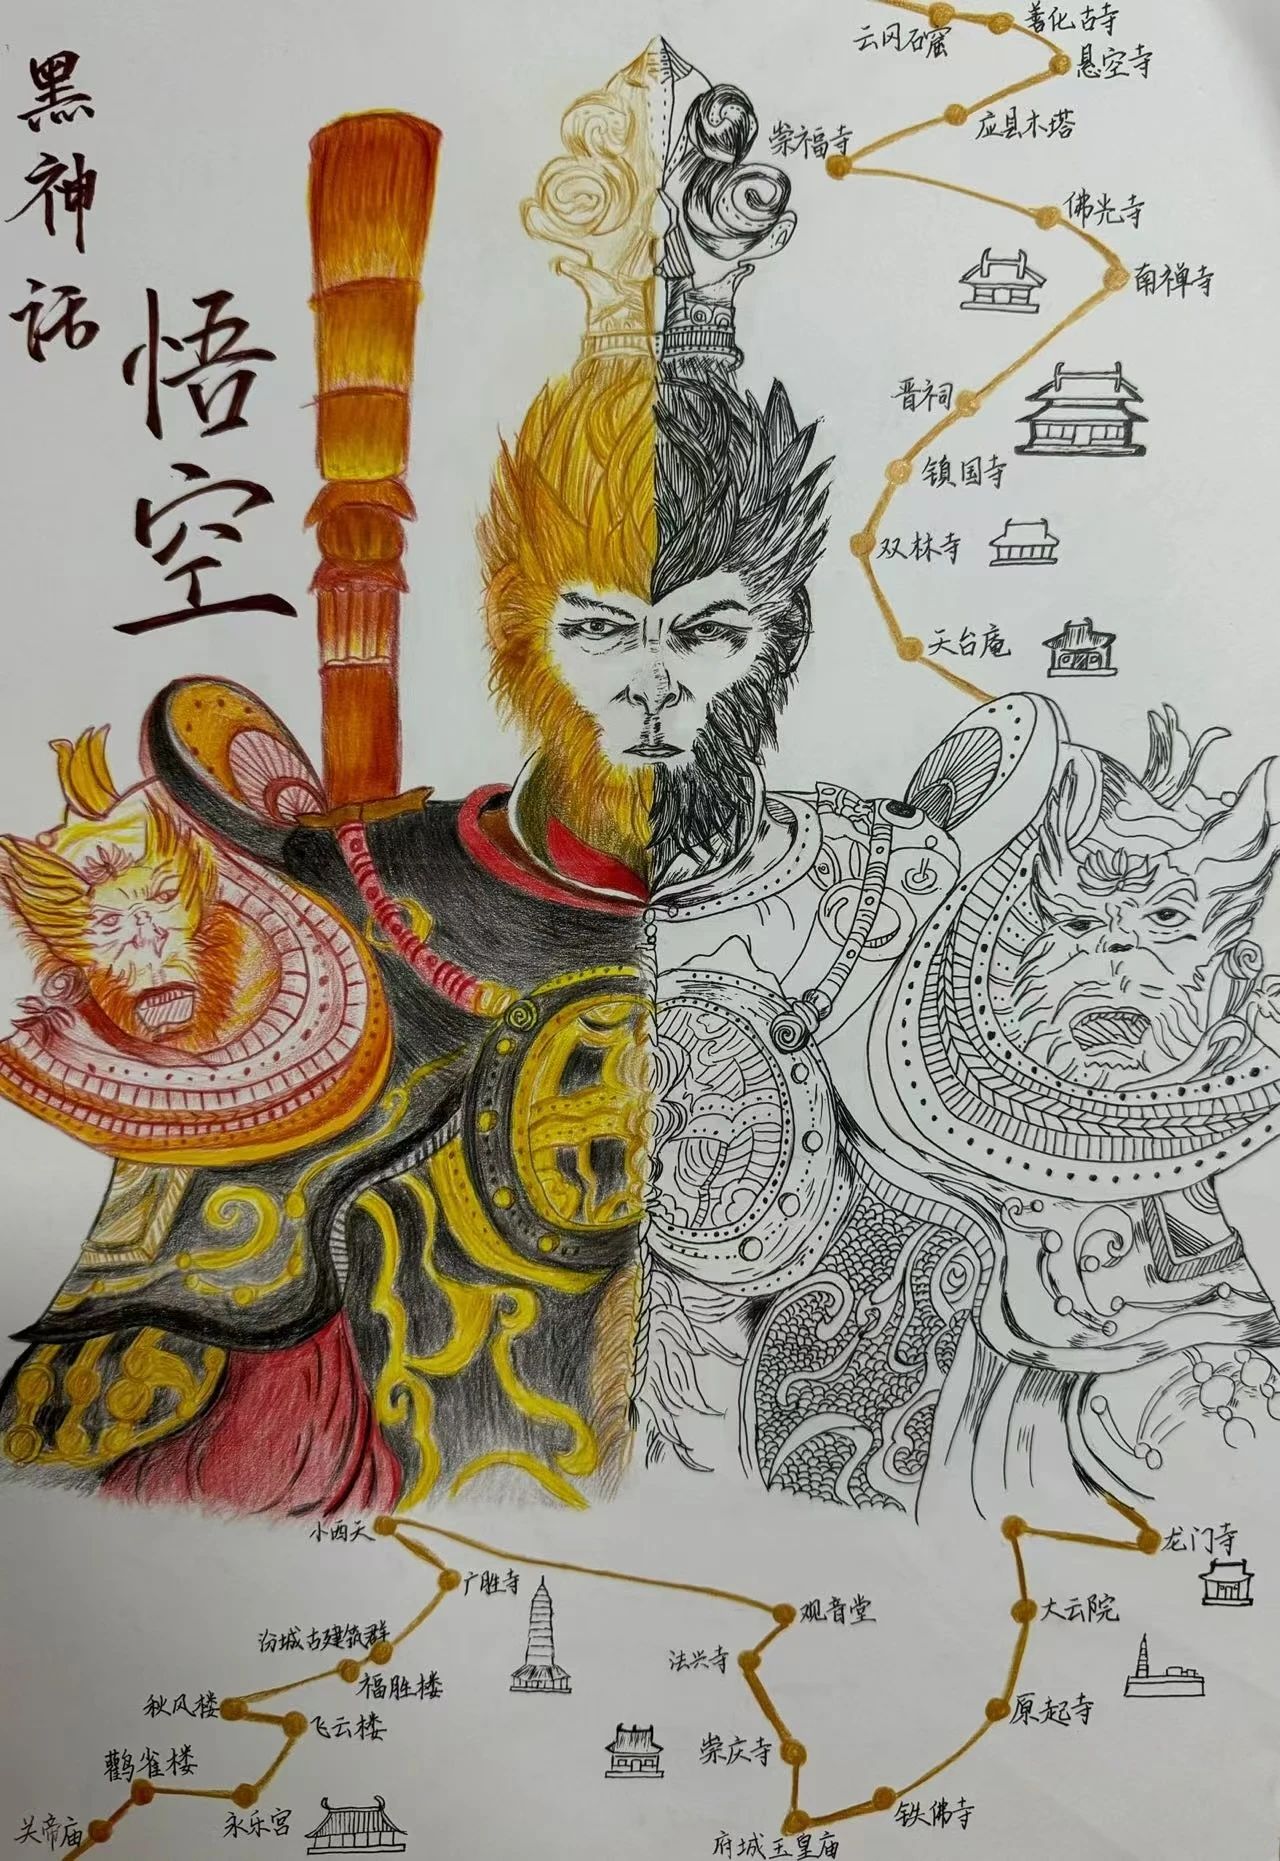 黑神话
悟空
云冈石窟
善化古寺
悬空寺
应县木塔
崇福寺
佛光寺
南禅寺
晋祠
镇国寺
双林寺
天台庵
龙门寺
大云院
原起寺
铁佛寺
府城玉皇庙
崇庆寺
法兴寺
观音堂
小西天
广胜寺
汾城古建筑群
福胜楼
秋风楼
飞云楼
鹳雀楼
永乐宫
关帝庙